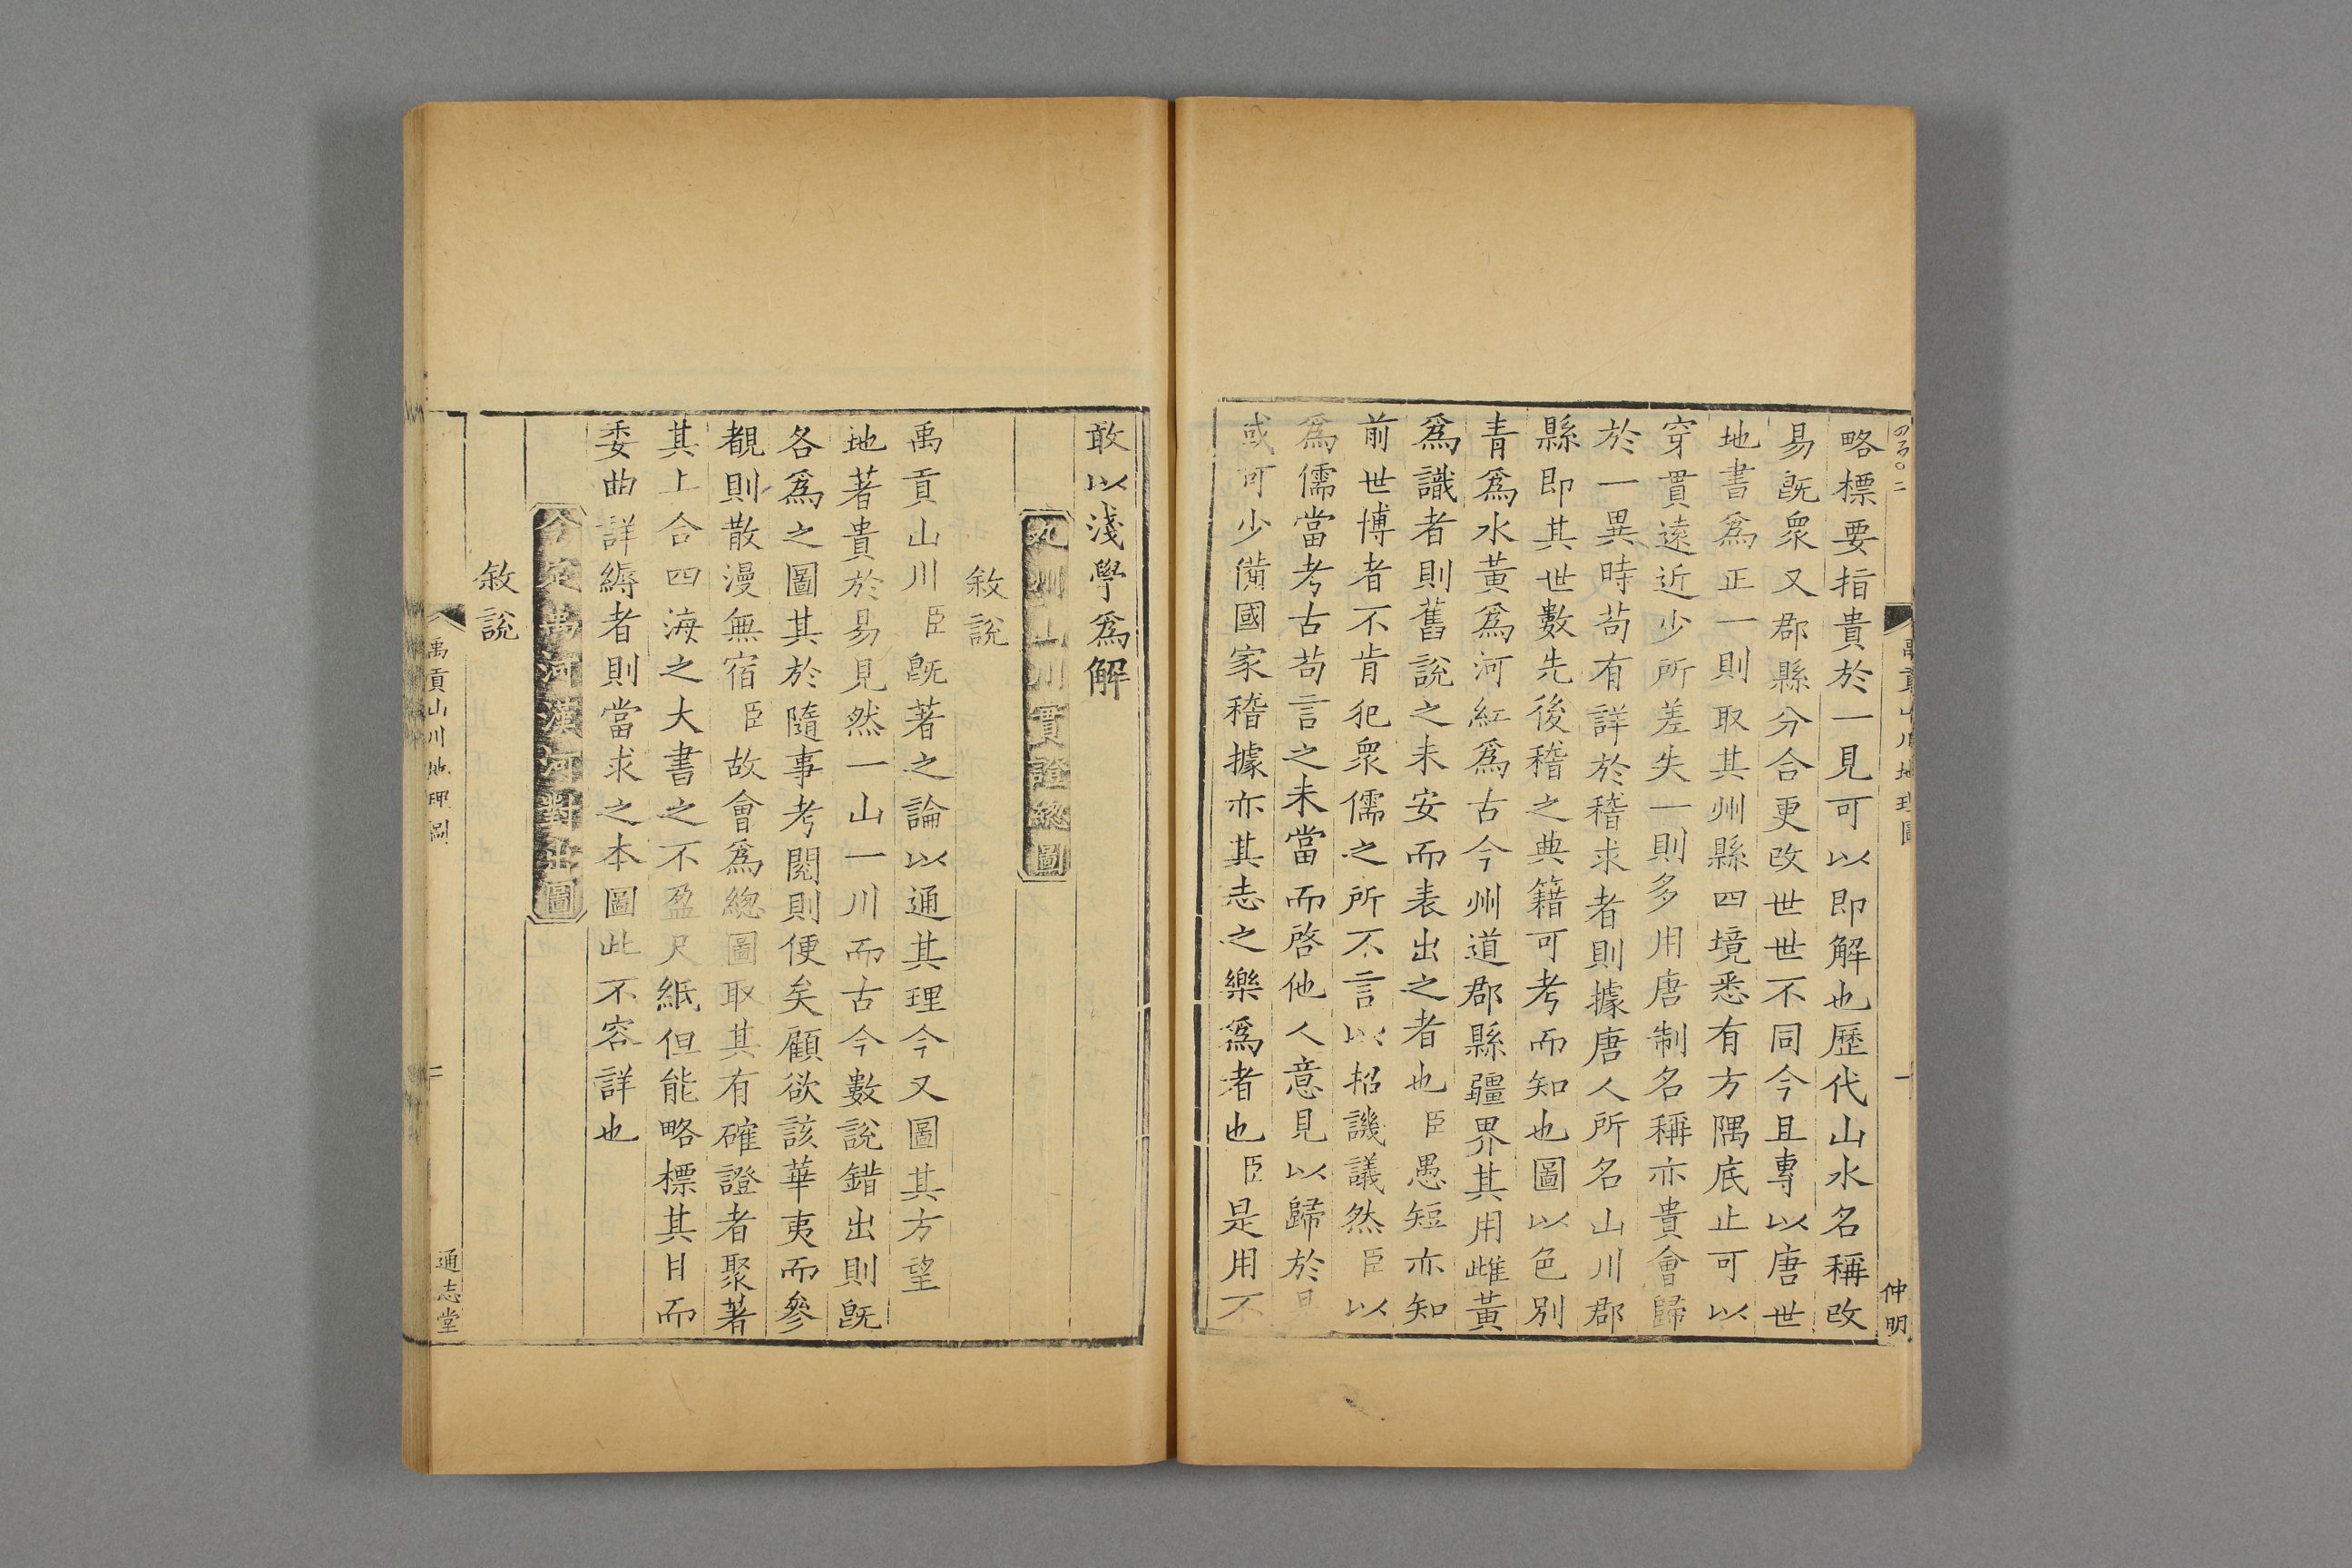 略標要指貴於一見可以即解也歷代山水名稱改
易旣衆又郡縣分合更改世世不同今且專以唐世
地書爲正一則取其州縣四境悉有方隅底止可以
穿貫遠近少所差失一則多用唐制名稱亦貴會歸
於一異時苟有詳於稽求者則據唐人所名山川郡
縣即其世數先後稽之典籍可考而知也圖以色別
青爲水黃爲河紅爲古今州道郡縣疆界其用雌黃
爲識者則舊說之未安而表出之者也臣愚短亦知
前世博者不肯犯衆儒之所不言以招譏議然臣以
爲儒當考古苟言之未當而啓他人意見以歸於是
或可少備國家稽據亦其志之樂爲者也臣是用不
禹貢山川地理圖
一
仲明
敢以淺學爲解
九州山川實證總圖
敘說
禹貢山川臣旣著之論以通其理今又圖其方望
地著貴於易見然一山一川而古今數說錯出則旣
各爲之圖其於隨事考閱則便矣顧欲該華夷而參
覩則散漫無宿臣故會爲總圖取其有確證者聚著
其上合四海之大書之不盈尺紙但能略標其目而
委曲詳縟者則當求之本圖此不容詳也
今定禹河漢河對出圖
敘說
禹貢山川地理圖
二
通志堂